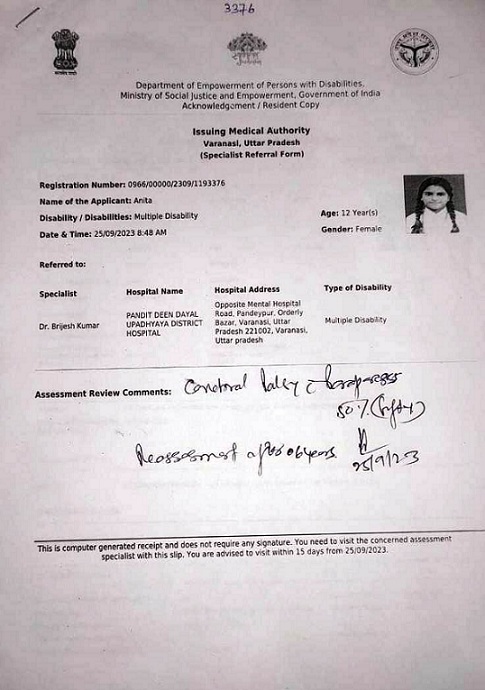 3376
Department of Empowerment of Persons with Disabilities,
Ministry of Social Justice and Empowerment, Government of India
Acknowledgement / Resident Copy
Issuing Medical Authority
Varanasi, Uttar Pradesh
(Specialist Referral Form)
Registration Number: 0966/00000/2309/1193376
Name of the Applicant: Anita
Disability / Disabilities: Multiple Disability
Age: 12 Year(s)
Date & Time: 25/09/2023 8:48 AM
Gender: Female
Referred to:
Specialist
Hospital Name
Hospital Address
Type of Disability
Dr. Brijesh Kumar
PANDIT DEEN DAYAL
UPADHYAYA DISTRICT
HOSPITAL
Opposite Mental Hospital
Road, Pandeypur, Orderly
Bazar, Varanasi, Uttar
Pradesh 221002, Varanasi,
Uttar pradesh
Multiple Disability
Assessment Review Comments:
50%
Reassessment after 06 years.
25/9/23
This is computer generated receipt and does not require any signature. You need to visit the concerned assessment
specialist with this slip. You are advised to visit within 15 days from 25/09/2023.